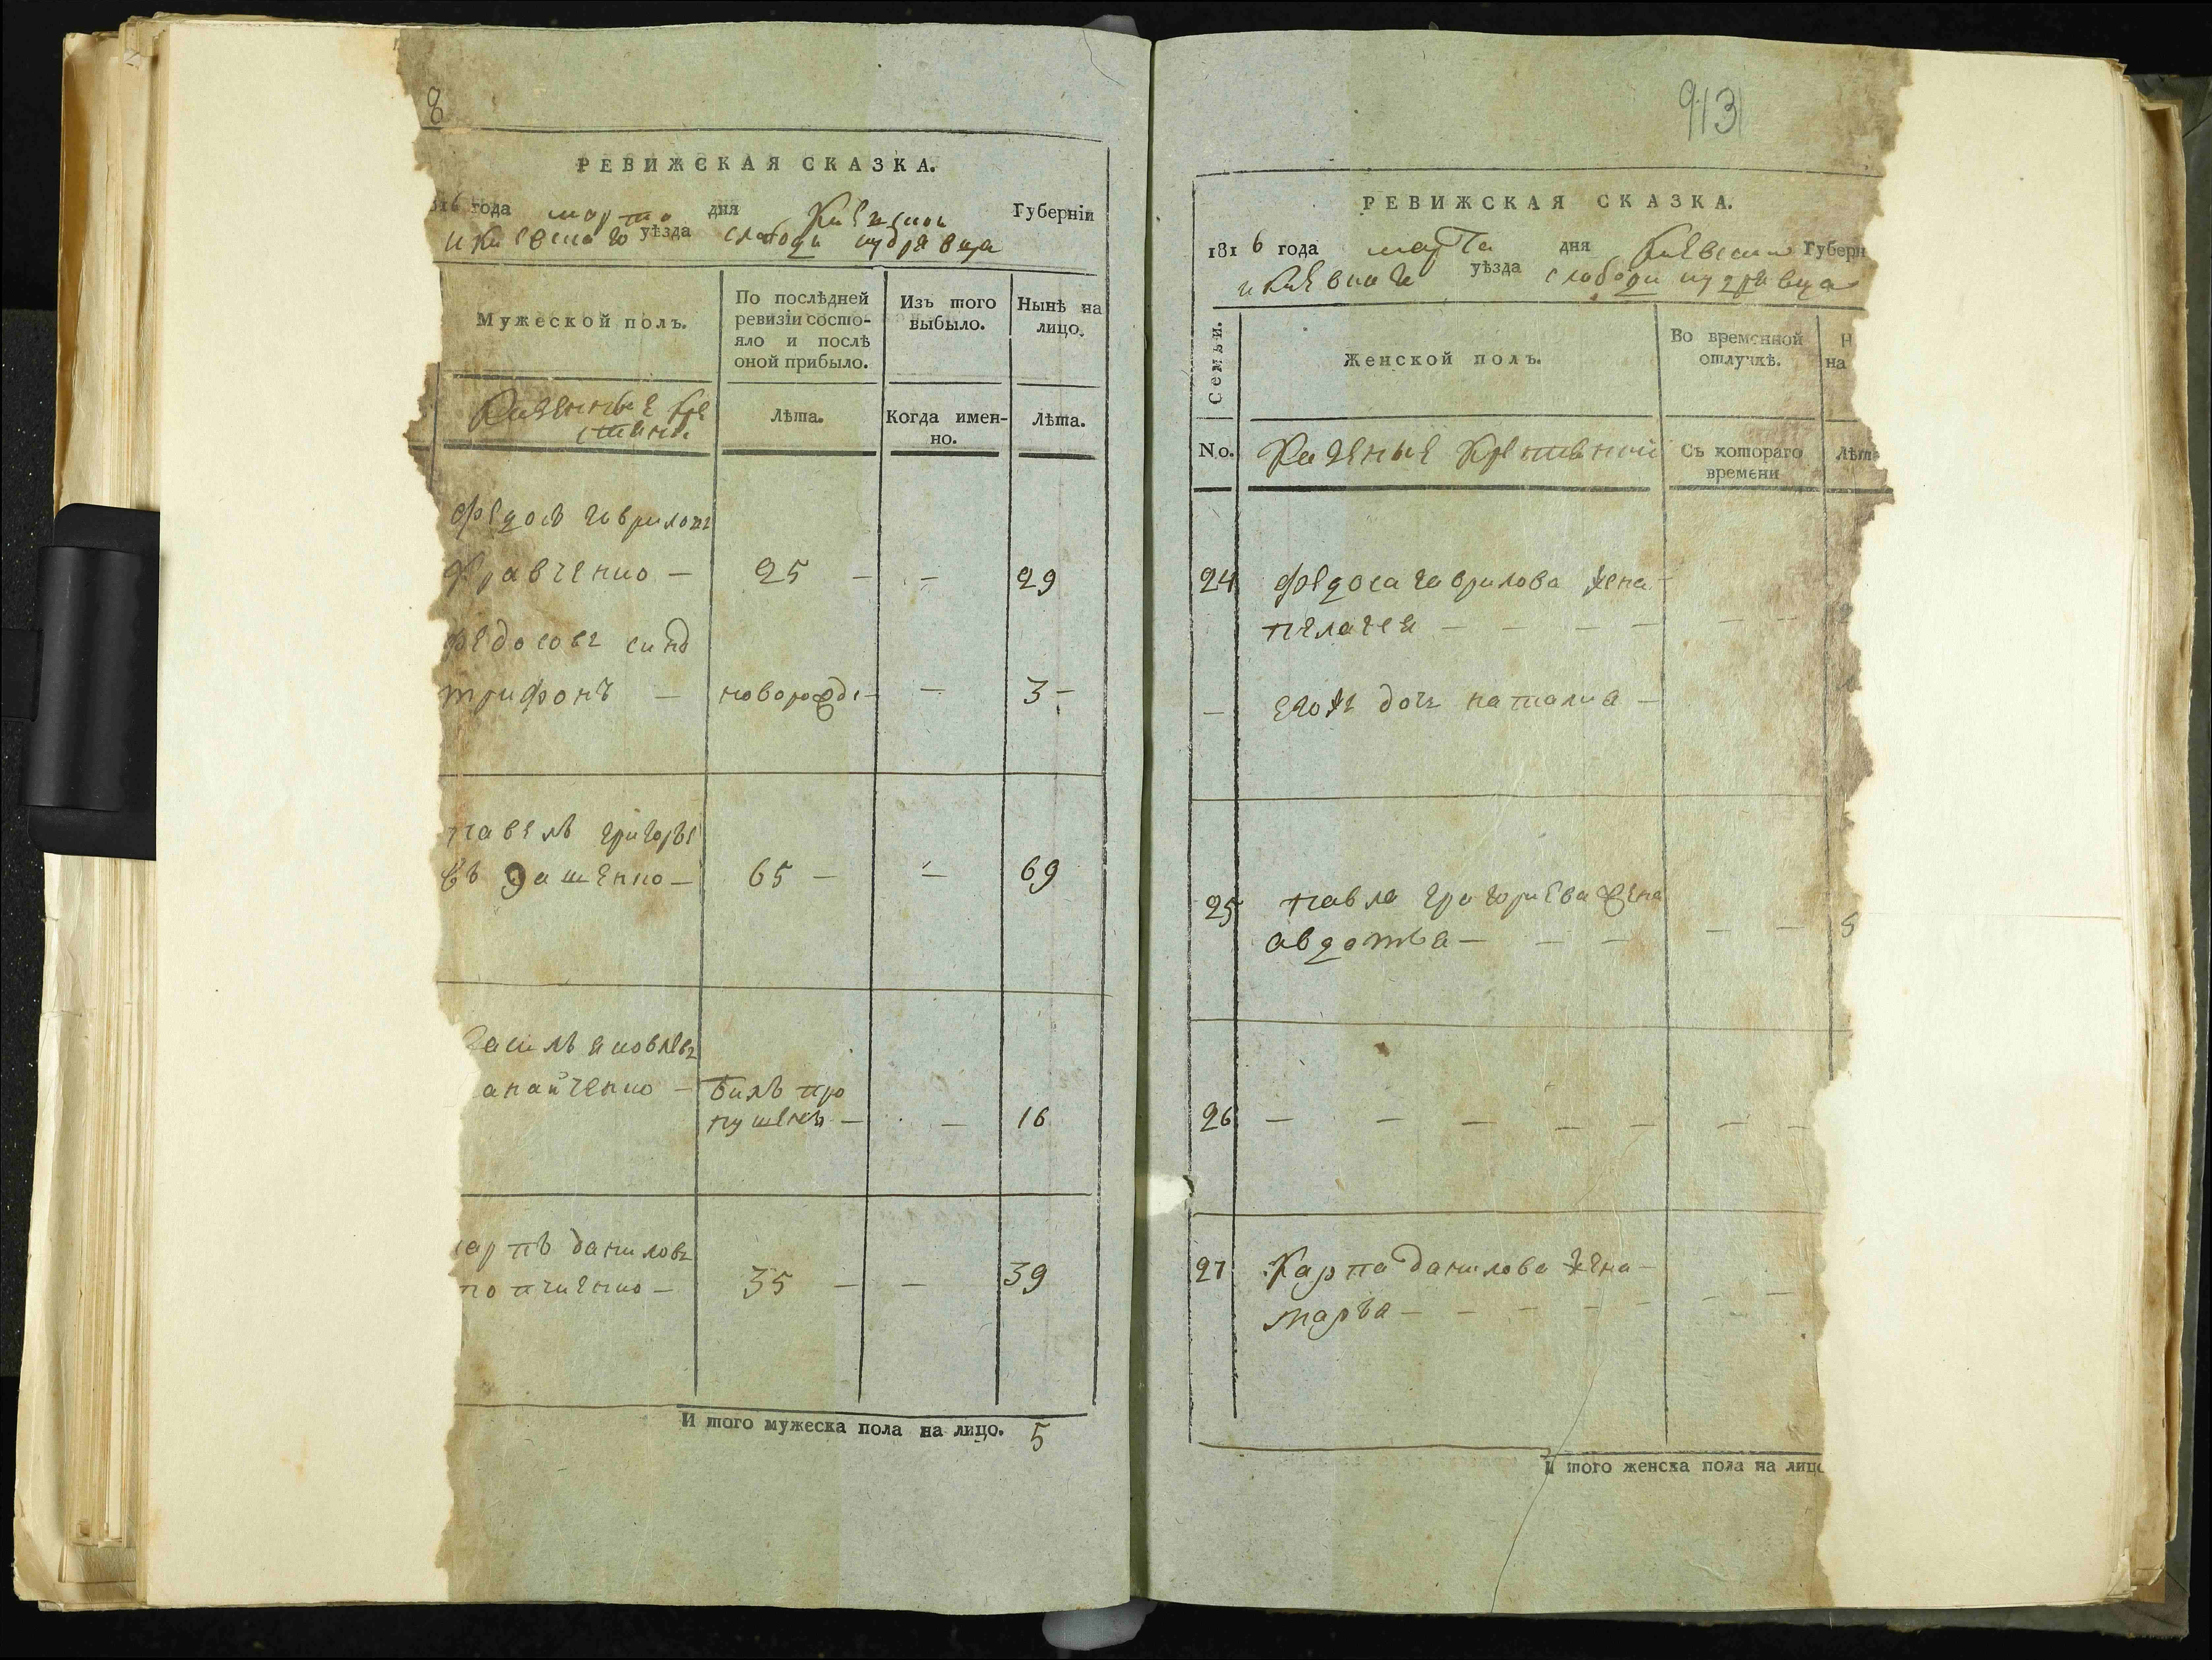 8
РЕВИЖСКАЯ СКАЗКА.
816 года марта дня Киевской Губерніи
и Киевскаго уѣзда слабоди кудрявца
Мужеской полъ.
По послѣдней ревизіи состо-
яло и послѣ
оной прибыло.
Изъ того
выбыло.
Нынѣ на
лицо.
Казенные кре
стяне.
Лѣта.
Когда имен-
но.
Лѣта.
федосъ гавриловъ
кравченко — 25 — — 29
федосовъ синъ
трифонъ — новорожде — — 3 —
павелъ григорье
въ дашенко — 65 — — 69
василь яковлевъ
анайченко — билъ про
пущенъ — — 16
карпъ даниловъ
35 — — 39
И того мужеска пола на лицо. 5
913
РЕВИЖСКАЯ СКАЗКА.
1816 года марта дня Киевской Губерн
и Киевскаго уѣзда слабоди кудрявца
Семьи.
Женской полъ.
Во временной
отлучкѣ.
Н
на
No.
Казеные крестяной
Съ котораго
времени
Лѣта
24 федоса гаврилова жена —
пелагея — — — — — —
— егожъ дочъ наталия —
25 павла григориева жена
авдотья — — — — — 5
26 — — — — — — —
27 Карпа данилова жена —
маръя — — — — — — —
И того женска пола на лицо